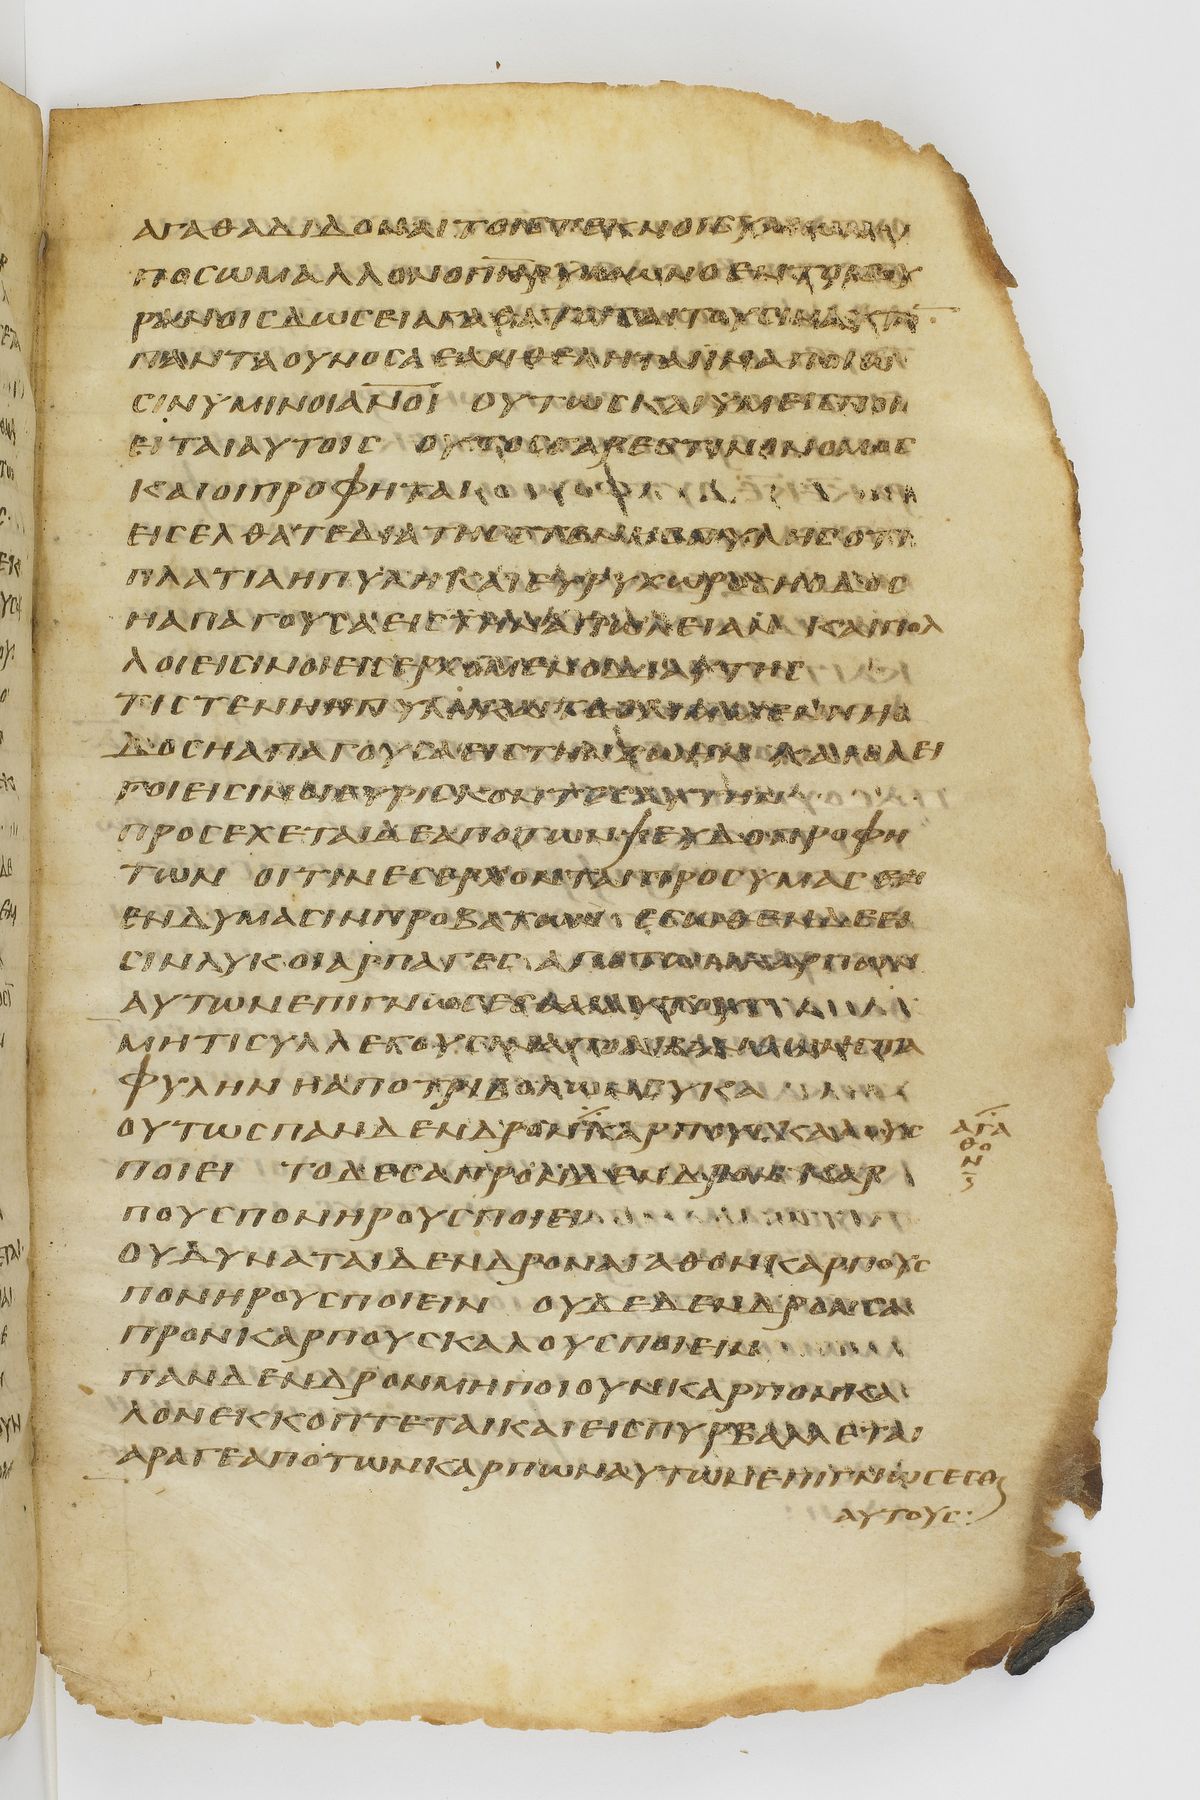 ΑΓΑΘΑΔΙΔΟΝΑΙΤΟΙΣ
ΠΟΣΩΜΑΛΛΟΝΟΠΗΡ
ΔΩΣΕΙΑΓΑΘΑ
ΠΑΝΤΑΟΥΝΟΣΑΕΑΝΘΕΛΗΤΑΙΙΝΑΠΟΙΩ
ΣΙΝΥΜΙΝΟΙΑΝΟΙ ΟΥΤΩΣΚΑΙΥΜΕΙΣΠΟΙ
ΕΙΤΑΙΑΥΤΟΙΣ ΟΥΤΟΣΓΑΡΕΣΤΙΝΟΝΟΜΟΣ
ΚΑΙΟΙΠΡΟΦΗΤΑΙ
ΕΙΣΕΛΘΑΤΕΔΙΑΤΗΣ
ΠΛΑΤΙΑΗΠΥΛΗΚΑΙΕΥΡΥΧΩΡΟΣΗΟΔΟΣ
ΗΑΠΑΓΟΥΣΑΕΙΣΤΗΝΑΠΩΛΕΙΑΝΚΑΙΠΟΛ
ΛΟΙΕΙΣΙΝΟΙΕΙΣΕΡΧΟΜΕΝΟΙΔΙΑΥΤΗΣ
ΤΙΣΤΕΝΗΗΠΥΛΗΚΑΙΤΕΘΛΙΜΜΕΝΗΗΟ
ΔΟΣΗΑΠΑΓΟΥΣΑΕΙΣΤΗΝΖΩΗΝΚΑΙΟΛΕΙ
ΓΟΙΕΙΣΙΝΟΙΕΥΡΙΣΚΟΝΤΕΣΑΥΤΗΝ
ΠΡΟΣΕΧΕΤΑΙΔΕΑΠΟΤΩΝΨΕΥΔΟΠΡΟΦΗ
ΤΩΝ ΟΙΤΙΝΕΣΕΡΧΟΝΤΑΙΠΡΟΣΥΜΑΣΕΝ
ΕΝΔΥΜΑΣΙΝΠΡΟΒΑΤΩΝ ΕΣΩΘΕΝΔΕΕΙ
ΣΙΝΛΥΚΟΙΑΡΠΑΓΕΣ ΑΠΟΤΩΝΚΑΡΠΩΝ
ΑΥΤΩΝΕΠΙΓΝΩΣΕΣΘΑΙΑΥΤΟΥΣ
ΜΗΤΙΣΥΛΛΕΓΟΥΣΙΝ
ΦΥΛΗΝΗΑΠΟΤΡΙΒΟΛΩΝΣΥΚΑ
ΟΥΤΩΣΠΑΝΔΕΝΔΡΟΝΚΑΡΠΟΥΣΚΑΛΟΥΣ
ΑΓΑ
ΘΟ
Ν
ΠΟΙΕΙ ΤΟΔΕΣΑΠΡΟΝΔΕΝΔΡΟΝΚΑΡ
ΠΟΥΣΠΟΝΗΡΟΥΣΠΟΙΕΙ
ΟΥΔΥΝΑΤΑΙΔΕΝΔΡΟΝΑΓΑΘΟΝΚΑΡΠΟΥΣ
ΠΟΝΗΡΟΥΣΠΟΙΕΙΝ ΟΥΔΕΔΕΝΔΡΟΝΣΑ
ΠΡΟΝΚΑΡΠΟΥΣΚΑΛΟΥΣΠΟΙΕΙΝ
ΠΑΝΔΕΝΔΡΟΝΜΗΠΟΙΟΥΝΚΑΡΠΟΝΚΑ
ΛΟΝΕΚΚΟΠΤΕΤΑΙΚΑΙΕΙΣΠΥΡΒΑΛΛΕΤΑΙ
ΑΡΑΓΕΑΠΟΤΩΝΚΑΡΠΩΝΑΥΤΩΝΕΠΙΓΝΩΣΕΣΘΕ
ΑΥΤΟΥΣ: